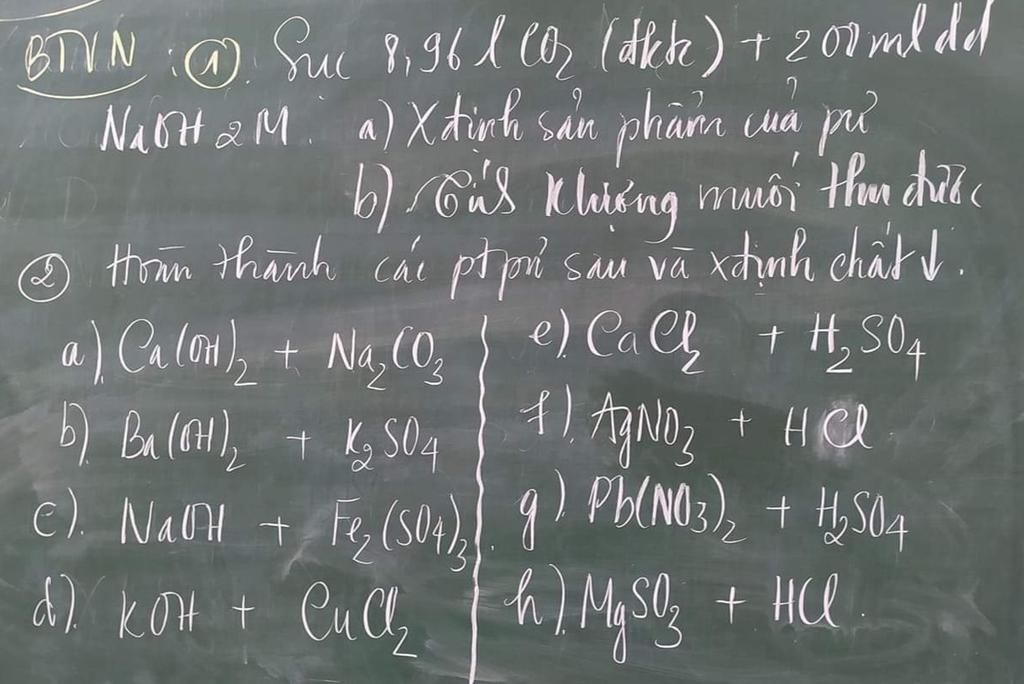 BTVN : ① Sục 8,96 l CO2 (đktc) + 200 ml dd
NaOH 2M. a) Xđịnh sản phẩm của pứ
b) Khlượng muối thu được
② Hoàn thành các ptpứ sau và xđịnh chất ↓.
a) Ca(OH)2 + Na2CO3
b). Ba(OH)2 + K2SO4
c). NaOH + Fe2(SO4)3
d). KOH + CuCl2
e). CaCl2 + H2SO4
f). AgNO3 + HCl
g). Pb(NO3)2 + H2SO4
h). MgSO3 + HCl.